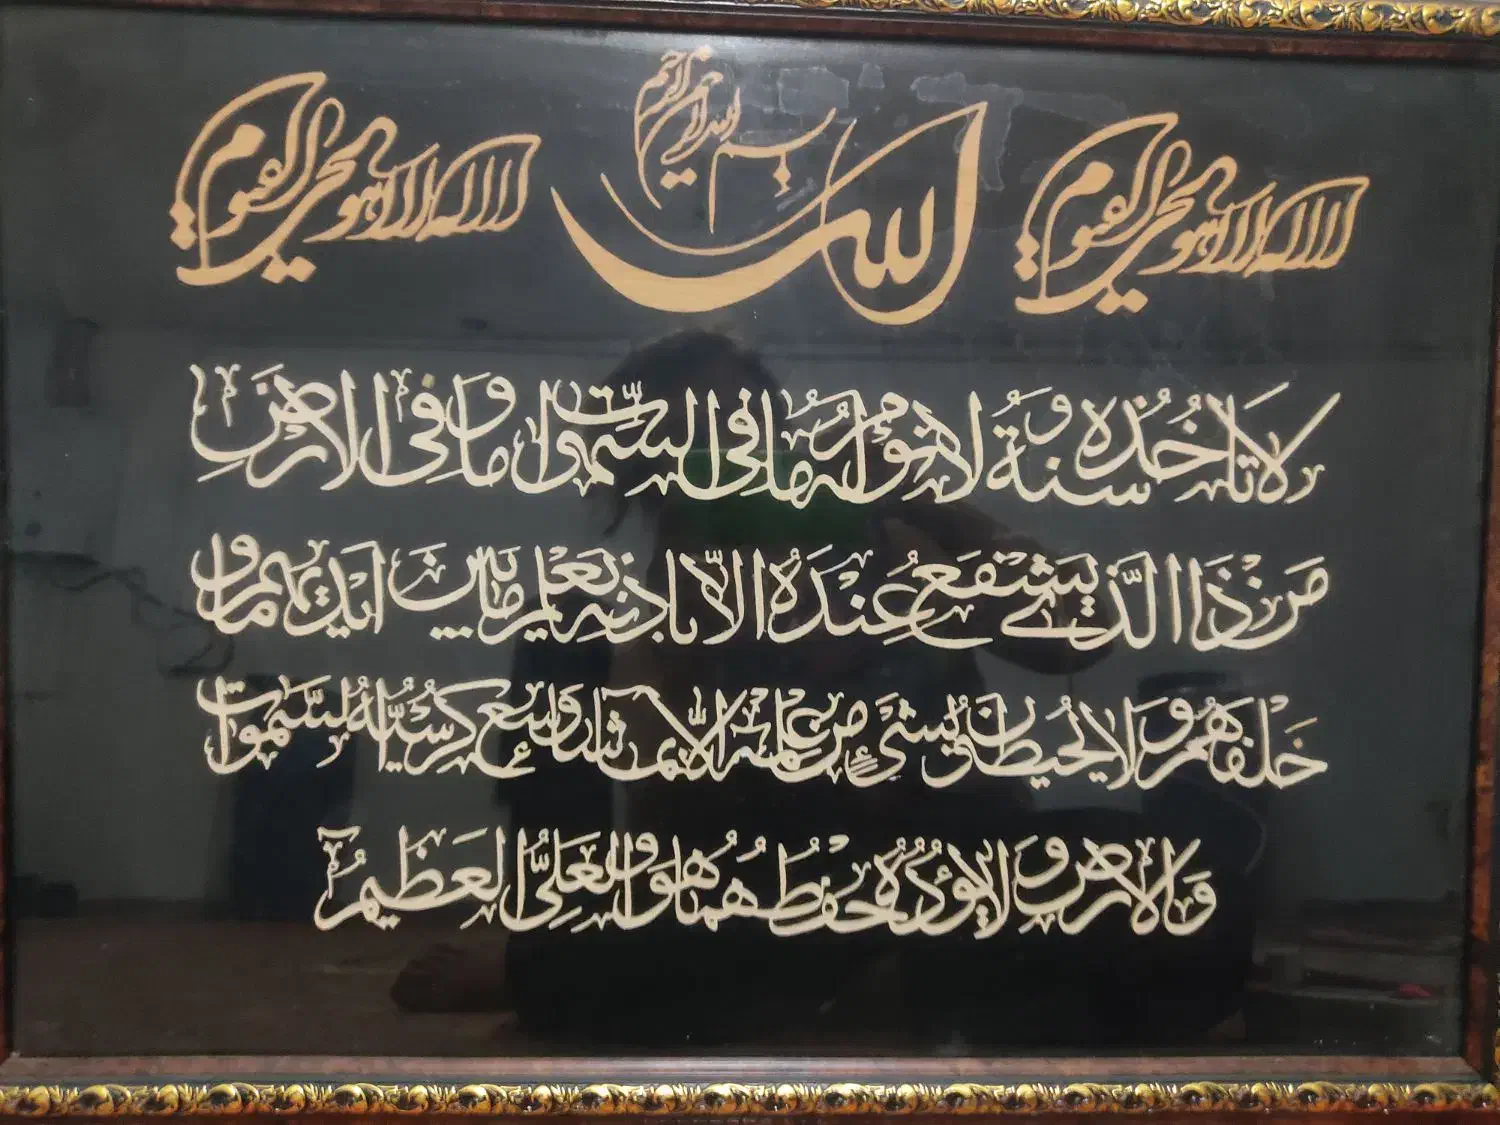 بسم الله الرحمن الرحيم
الله لا اله الا هو الحي القيوم
الله
الله لا اله الا هو الحي القيوم
لَا تَأْخُذُهُ سِنَةٌ وَلَا نَوْمٌ لَهُ مَا فِي السَّمٰوٰتِ وَمَا فِي الْاَرْضِ
مَنْ ذَا الَّذِي يَشْفَعُ عِنْدَهُ اِلَّا بِاِذْنِهِ يَعْلَمُ مَا بَيْنَ اَيْدِيهِمْ وَمَا
خَلْفَهُمْ وَلَا يُحِيطُونَ بِشَيْءٍ مِنْ عِلْمِهِ اِلَّا بِمَا شَاءَ وَسِعَ كُرْسِيُّهُ السَّمٰوَاتِ
وَالْاَرْضَ وَلَا يَؤُدُهُ حِفْظُهُمَا وَهُوَ الْعَلِيُّ الْعَظِيمُ